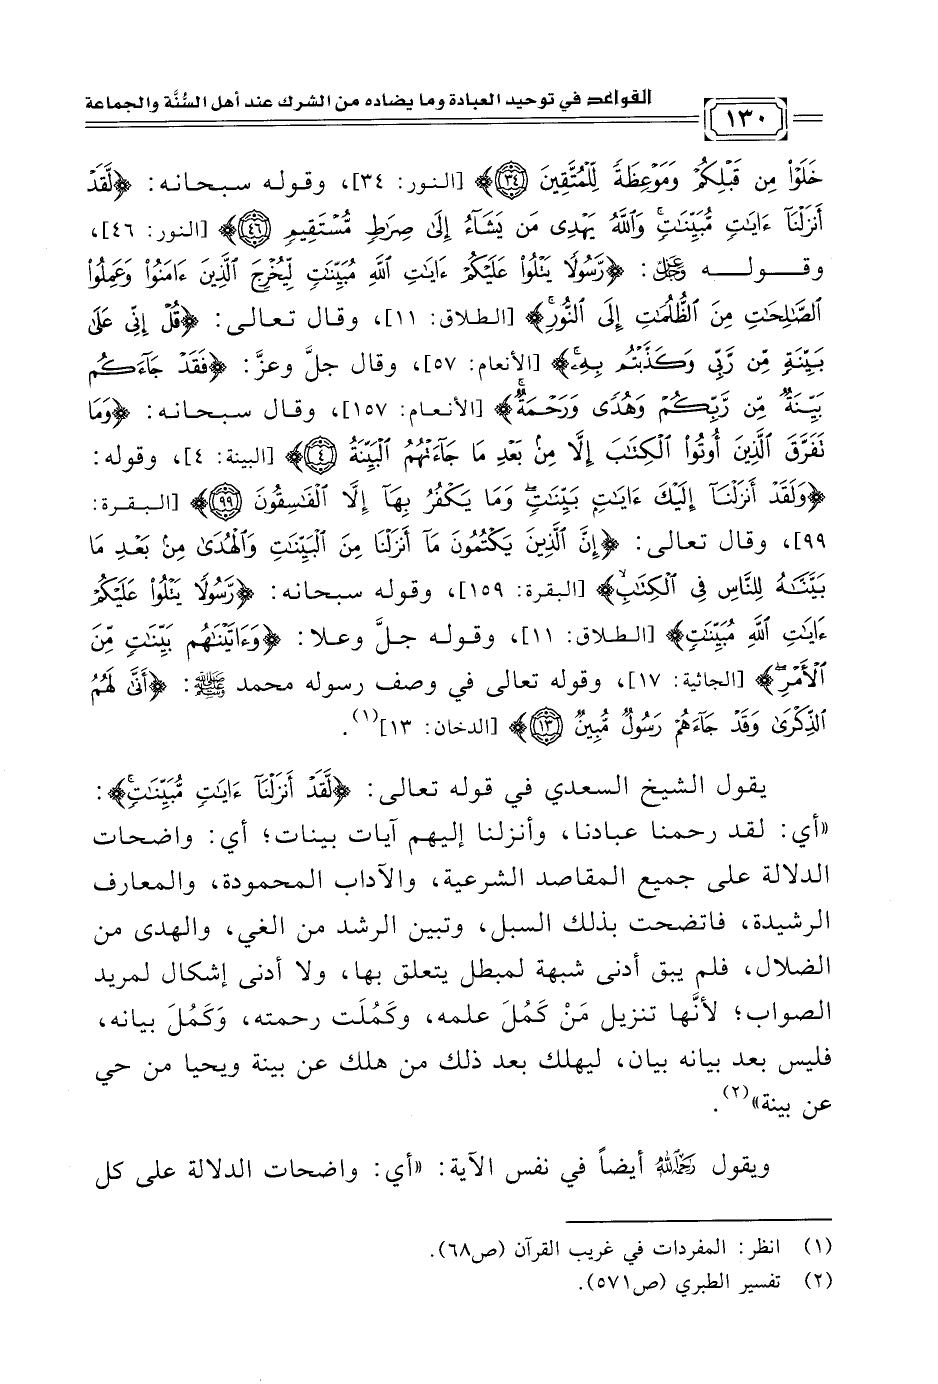 القواعد في توحيد العبادة وما يضاده من الشرك عند أهل السُّنَّة والجماعة
١٣٠
خَلَوْا۟ مِن قَبْلِكُمْ وَمَوْعِظَةً لِّلْمُتَّقِينَ ﴿٣٤﴾﴾ [النور: ٣٤]، وقوله سبحانه: ﴿لَّقَدْ
أَنزَلْنَآ ءَايَٰتٍ مُّبَيِّنَٰتٍ ۚ وَٱللَّهُ يَهْدِى مَن يَشَآءُ إِلَىٰ صِرَٰطٍ مُّسْتَقِيمٍ ﴿٤٦﴾﴾ [النور: ٤٦]،
وقـولـه ﷿: ﴿رَّسُولًا يَتْلُوا۟ عَلَيْكُمْ ءَايَٰتِ ٱللَّهِ مُبَيِّنَٰتٍ لِّيُخْرِجَ ٱلَّذِينَ ءَامَنُوا۟ وَعَمِلُوا۟
ٱلصَّٰلِحَٰتِ مِنَ ٱلظُّلُمَٰتِ إِلَى ٱلنُّورِ ۚ﴾ [الطلاق: ١١]، وقال تعالى: ﴿قُلْ إِنِّى عَلَىٰ
بَيِّنَةٍ مِّن رَّبِّى وَكَذَّبْتُم بِهِۦ ۚ﴾ [الأنعام: ٥٧]، وقال جلَّ وعزَّ: ﴿فَقَدْ جَآءَكُم
بَيِّنَةٌ مِّن رَّبِّكُمْ وَهُدًى وَرَحْمَةٌ ۚ﴾ [الأنعام: ١٥٧]، وقال سبحانه: ﴿وَمَا
تَفَرَّقَ ٱلَّذِينَ أُوتُوا۟ ٱلْكِتَٰبَ إِلَّا مِنۢ بَعْدِ مَا جَآءَتْهُمُ ٱلْبَيِّنَةُ ﴿٤﴾﴾ [البينة: ٤]، وقوله:
﴿وَلَقَدْ أَنزَلْنَآ إِلَيْكَ ءَايَٰتٍۭ بَيِّنَٰتٍ ۖ وَمَا يَكْفُرُ بِهَآ إِلَّا ٱلْفَٰسِقُونَ ﴿٩٩﴾﴾ [البقرة:
٩٩]، وقال تعالى: ﴿إِنَّ ٱلَّذِينَ يَكْتُمُونَ مَآ أَنزَلْنَا مِنَ ٱلْبَيِّنَٰتِ وَٱلْهُدَىٰ مِنۢ بَعْدِ مَا
بَيَّنَّٰهُ لِلنَّاسِ فِى ٱلْكِتَٰبِ ۙ﴾ [البقرة: ١٥٩]، وقوله سبحانه: ﴿رَّسُولًا يَتْلُوا۟ عَلَيْكُمْ
ءَايَٰتِ ٱللَّهِ مُبَيِّنَٰتٍ﴾ [الطلاق: ١١]، وقوله جلَّ وعلا: ﴿وَءَاتَيْنَٰهُم بَيِّنَٰتٍ مِّنَ
ٱلْأَمْرِ ۖ﴾ [الجاثية: ١٧]، وقوله تعالى في وصف رسوله محمد ﷺ: ﴿أَنَّىٰ لَهُمُ
ٱلذِّكْرَىٰ وَقَدْ جَآءَهُمْ رَسُولٌ مُّبِينٌ ﴿١٣﴾﴾ [الدخان: ١٣](١).
يقول الشيخ السعدي في قوله تعالى: ﴿لَّقَدْ أَنزَلْنَآ ءَايَٰتٍ مُّبَيِّنَٰتٍ ۚ﴾:
«أي: لقد رحمنا عبادنا، وأنزلنا إليهم آيات بينات؛ أي: واضحات
الدلالة على جميع المقاصد الشرعية، والآداب المحمودة، والمعارف
الرشيدة، فاتضحت بذلك السبل، وتبين الرشد من الغي، والهدى من
الضلال، فلم يبق أدنى شبهة لمبطل يتعلق بها، ولا أدنى إشكال لمريد
الصواب؛ لأنَّها تنزيل مَنْ كَمُلَ علمه، وكَمُلَت رحمته، وَكَمُلَ بيانه،
فليس بعد بيانه بيان، ليهلك بعد ذلك من هلك عن بينة ويحيا من حي
عن بينة»(٢).
ويقول رَحِمَهُ اللهُ أيضاً في نفس الآية: «أي: واضحات الدلالة على كل
(١) انظر: المفردات في غريب القرآن (ص٦٨).
(٢) تفسير الطبري (ص٥٧١).